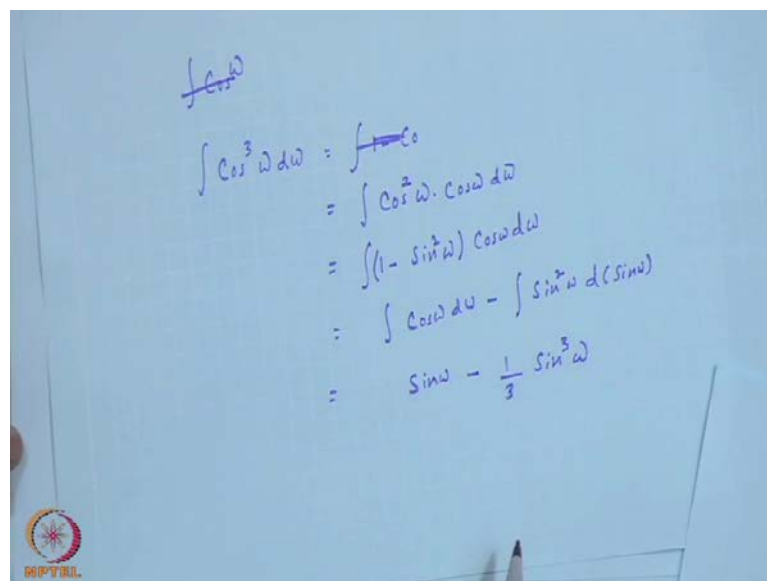 ∫ Cos ω
∫ Cos³ ω dω = ∫ 1 - Co
= ∫ Cos² ω . Cosω dω
= ∫(1 - Sin² ω) Cosω dω
= ∫ Cosω dω - ∫ Sin² ω d(Sinω)
= Sinω - 1/3 Sin³ ω
NPTEL